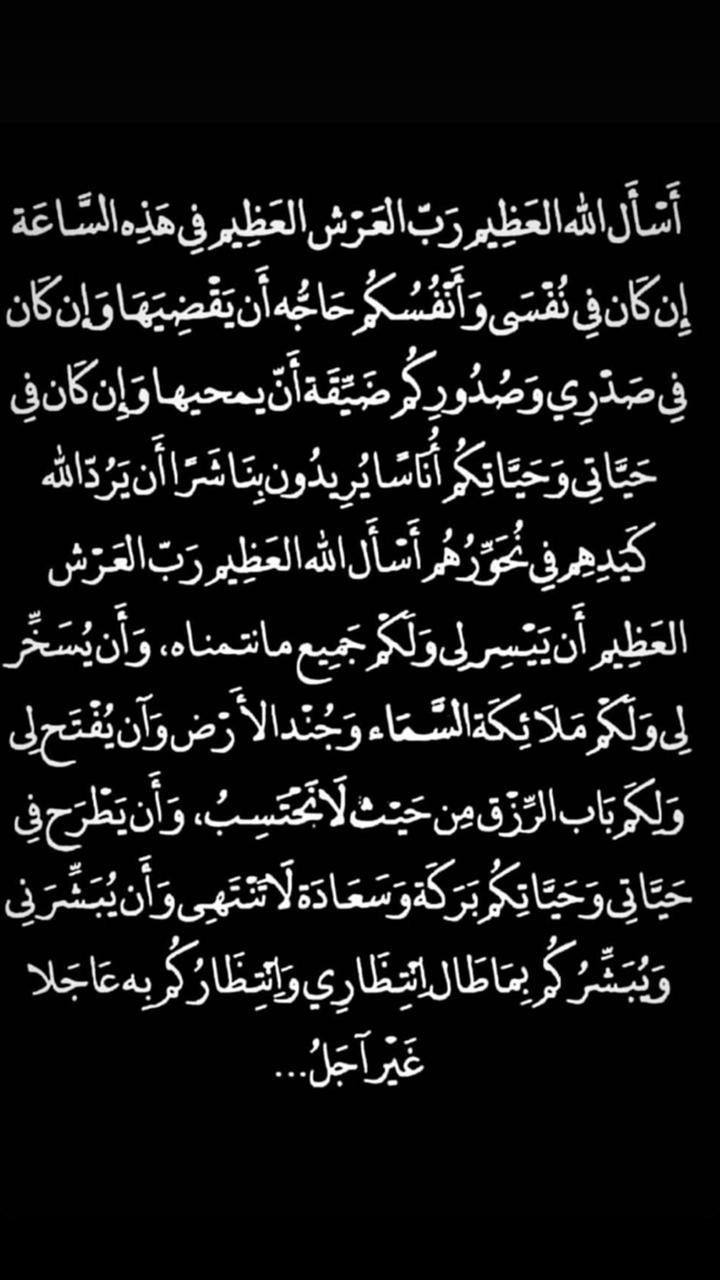 أَسْأَل الله العَظِيم رَبّ العَرْش العَظِيم فِي هَذِه السَّاعَة
إِن كَان فِي نُفْسَى وَأَنْفُسُكُم حَاجُّه أَن يَقْضِيَهَا وَإِن كَان
فِي صَدْرِي وَصُدُورِكُم ضَيِّقَة أَنّ يمحيها وَإِن كَان فِي
حَيَّاتِي وَحَيَّاتِكُم أُنَاسًا يُرِيدُون بِنَا شَرًا أَن يَرُدّ الله
كَيَدِهِم فِي نُحَوِّرُهُم أَسْأَل الله العَظِيم رَبّ العَرْش
العَظِيم أَن يَيْسِر لِى وَلَكَم جَمِيع مانتمناه، وَأَن يُسَخِّر
لِى وَلَكَم مَلَائِكَة السَّمَاء وَجُنْد الأَرْض وَآن يُفْتَح لِى
وَلِكَم بَاب الرِّزْق مِن حَيْث لَا نَحْتَسِبُ، وَأَن يَطْرَح فِي
حَيَّاتِي وَحَيَّاتِكُم بَرَكَة وَسَعَادَة لَا تَنْتَهِى وَأَن يُبَشِّرَنِى
وَيُبَشِّرُكُم بِمَا طَال اِنْتِظَارِي وَاِنْتِظَارُكُم بِه عَاجَلا
غَيْر آجَلُ...